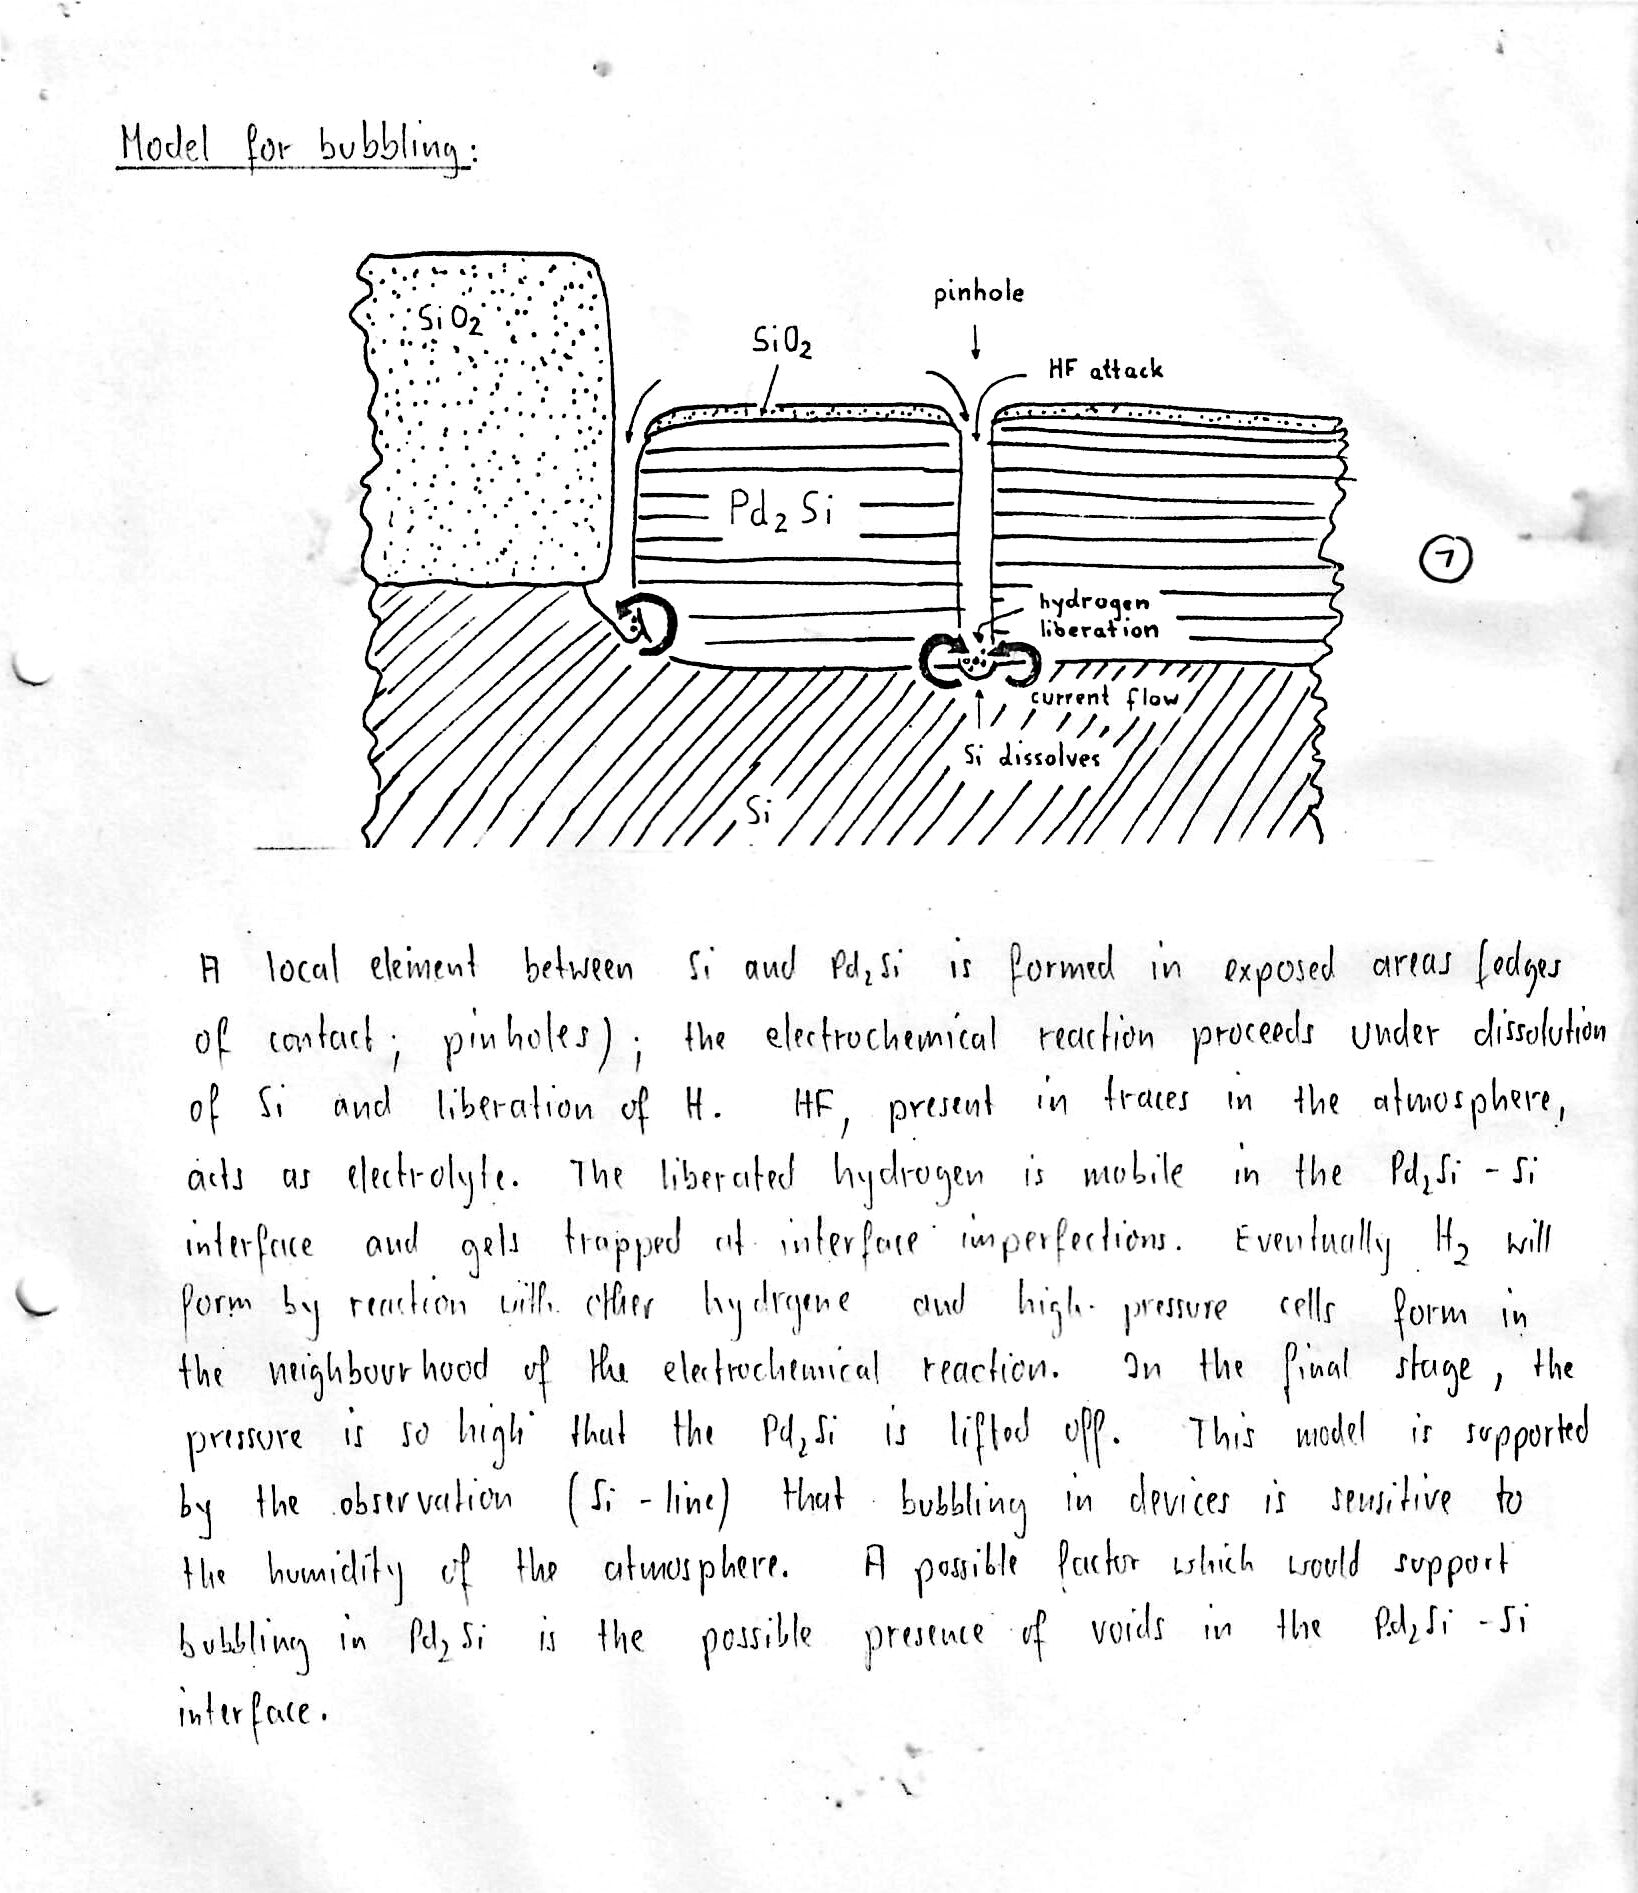 Model for bubbling:
SiO2
pinhole
SiO2
HF attack
Pd2Si
7
hydrogen
liberation
current flow
Si dissolves
Si
A local element between Si and Pd2Si is formed in exposed areas (edges
of contact; pinholes); the electrochemical reaction proceeds under dissolution
of Si and liberation of H. HF, present in traces in the atmosphere,
acts as electrolyte. The liberated hydrogen is mobile in the Pd2Si - Si
interface and gets trapped at interface imperfections. Eventually H2 will
form by reaction with other hydrgene and high pressure cells form in
the neighbourhood of the electrochemical reaction. In the final stage, the
pressure is so high that the Pd2Si is lifted off. This model is supported
by the observation (Si - line) that bubbling in devices is sensitive to
the humidity of the atmosphere. A possible factor which would support
bubbling in Pd2Si is the possible presence of voids in the Pd2Si - Si
interface.